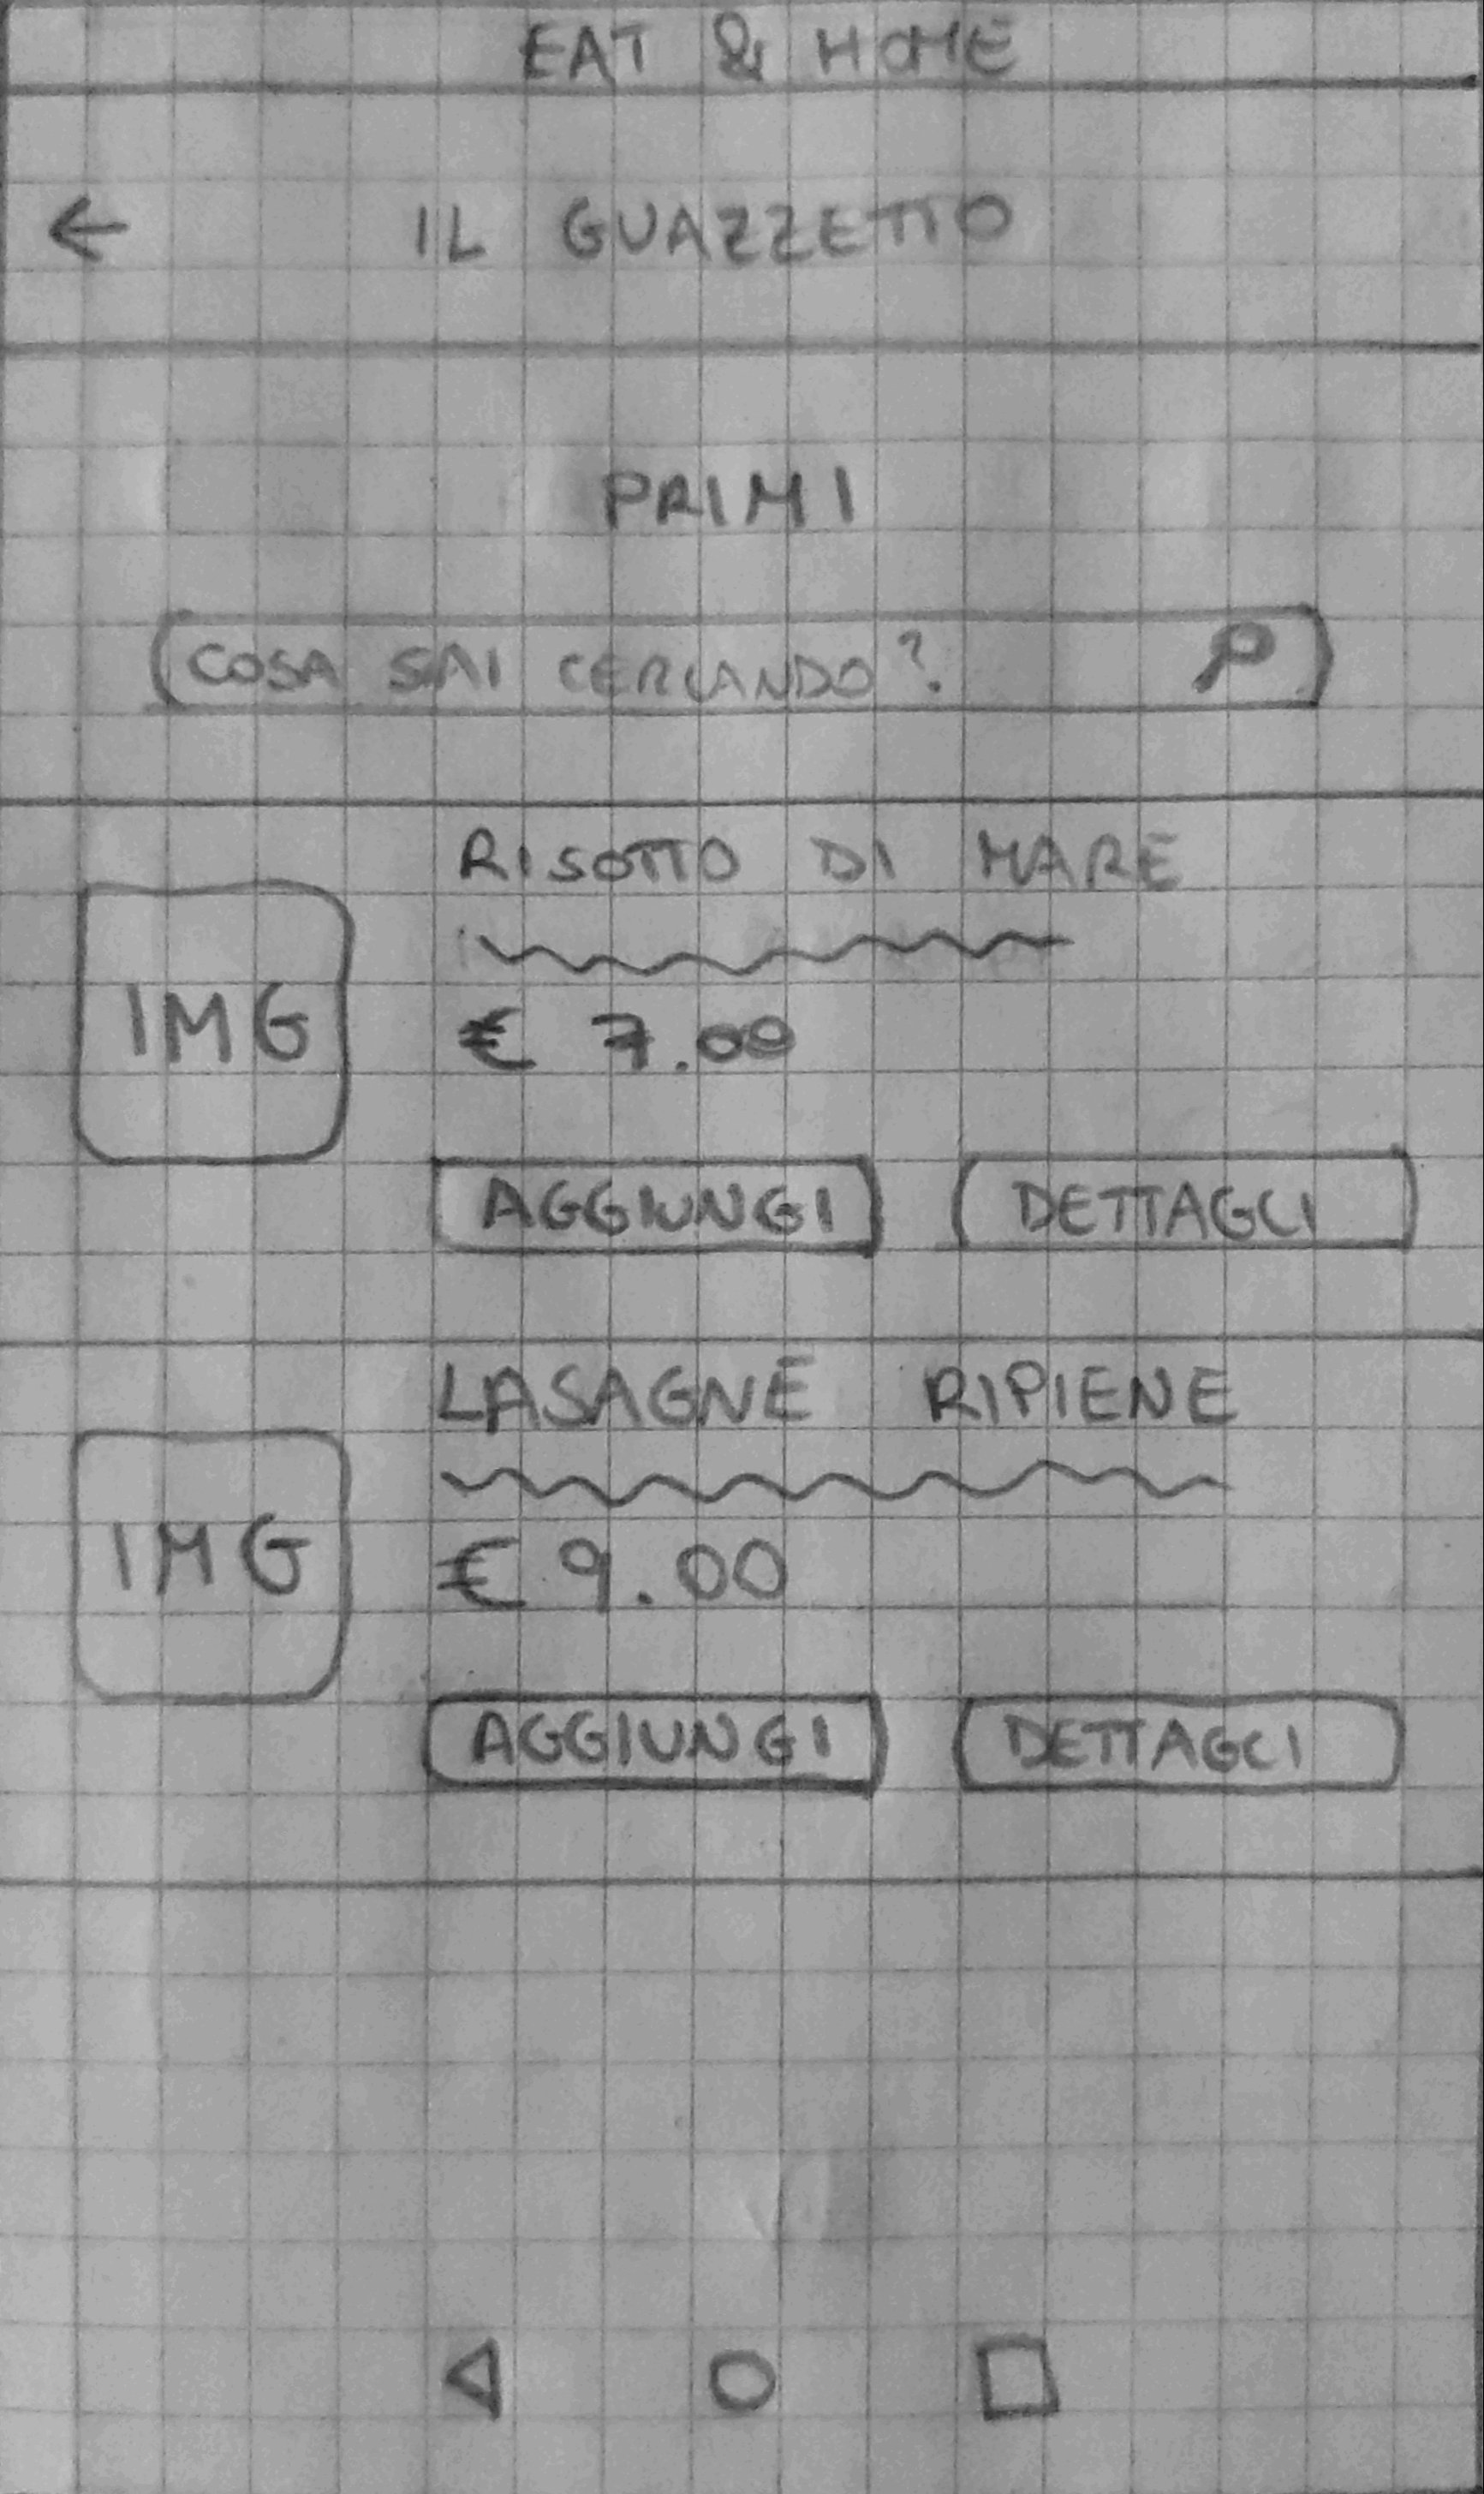 EAT & HOME
← IL GUAZZETTO
PRIMI
COSA STAI CERCANDO?
RISOTTO DI MARE
IMG
€ 7.00
AGGIUNGI DETTAGLI
LASAGNE RIPIENE
IMG
€ 9.00
AGGIUNGI DETTAGLI